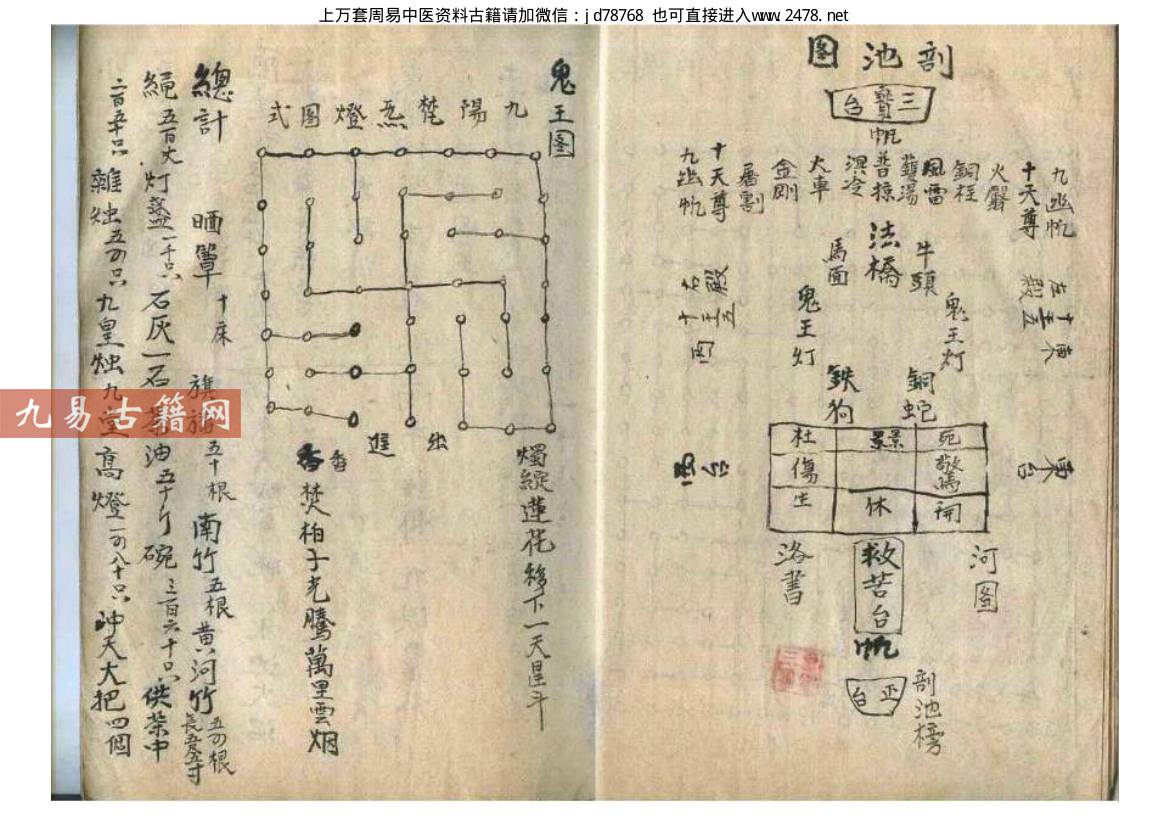 上万套周易中医资料古籍请加微信：jd78768 也可直接进入www.2478.net
剖池圖
三寶台
帆
九幽帆
十天尊
火嚴
銅柱
風雷
鑊湯
普掠
溟冷
火車
金剛
屠割
十天尊
九幽帆
法橋
牛頭
馬面
鬼王灯
鬼王灯
左殿
十王五
東
右殿
十王五
西
銅蛇
鉄狗
杜 景 死
傷 驚
生 休 開
東台
西台
河图
洛書
救苦台
帆
正台
剖池榜
鬼王图
九陽梵炁燈圖式
出
進
香
燭綻蓮花移下一天星斗
香焚柏子光騰萬里雲烟
總計
晒簟十床
旗旛五十根
南竹五根
黄河竹
繩五百丈
灯盏一千只
石灰一石
茶油五十斤
碗三百六十只
供菜中
二百五十只
雜烛
九皇烛九堂
高燈
冲天大把四個
九易古籍网